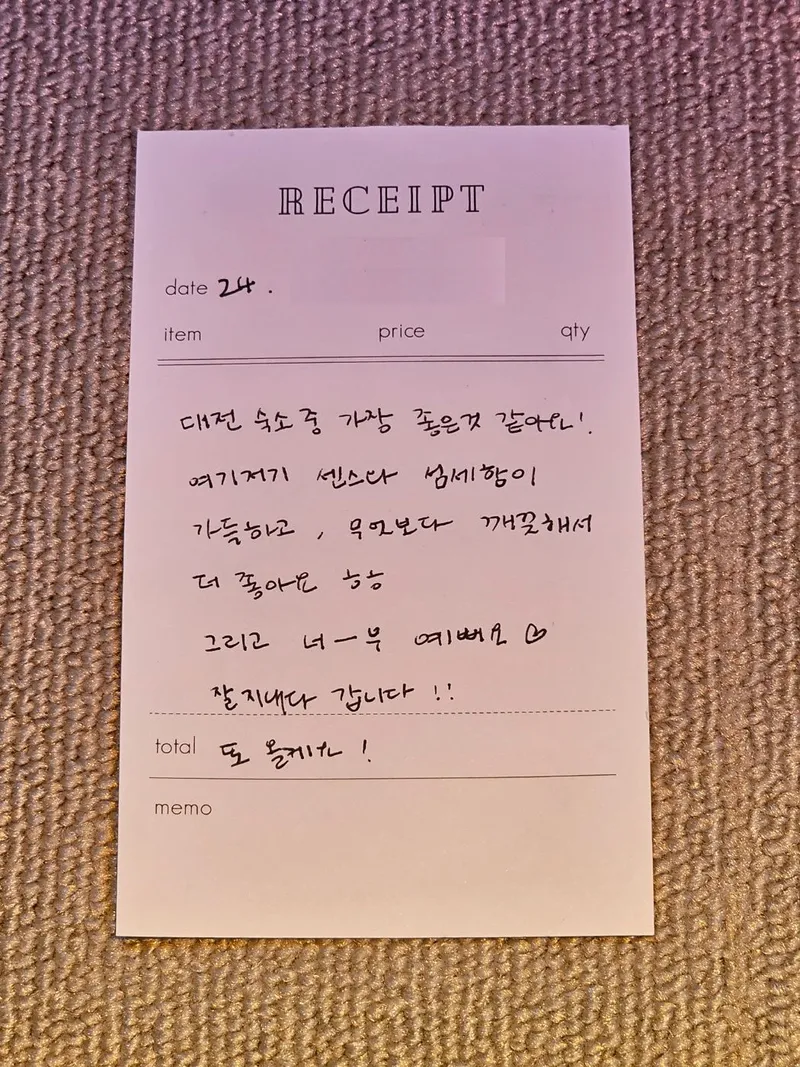 RECEIPT
date 24.
item price qty
대전 숙소중 가장 좋은것 같아요!
여기저기 센스다 섬세함이
가득하고, 무엇보다 깨끗해서
더 좋아요 ㅎㅎ
그리고 너ㅡ무 예뻐요♡
잘지내다 갑니다!!
total 또 올게요!
memo